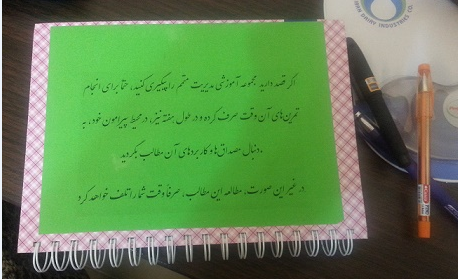 IRAN DAIRY INDUSTRIES CO.
اگر قصد دارید مجموعه آموزشی مدیریت متمم را پیگیری کنید، حتما برای انجام
تمرین‌های آن وقت صرف کرده و در طول هفته نیز، در محیط پیرامون خود، به
دنبال مصداق‌ها و کاربردهای آن مطالب بگردید.
در غیر این صورت، مطالعه این مطالب، صرفاً وقت شما را تلف خواهد کرد